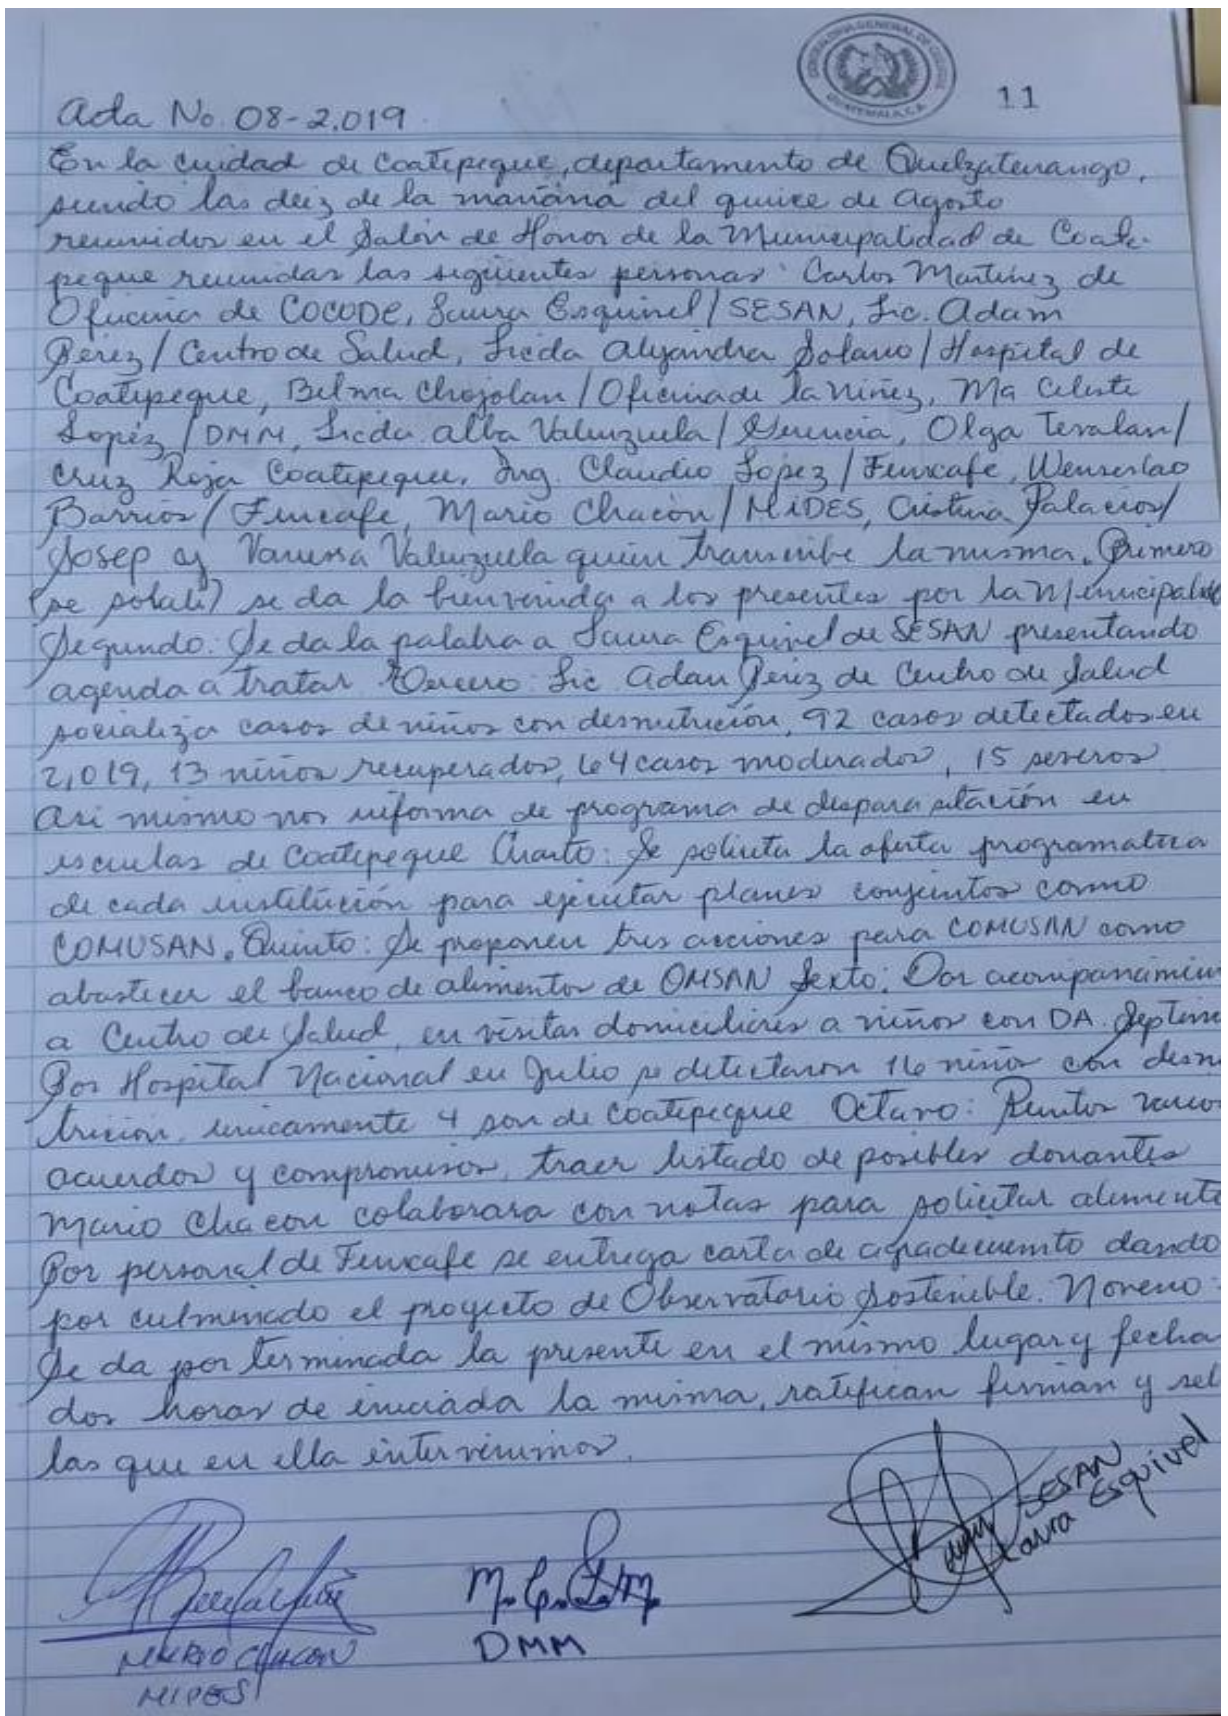 CONTRALORIA GENERAL DE CUENTAS
GUATEMALA, C.A.
11
Acta No. 08-2,019.
En la cuidad de Coatepeque, departamento de Quetzaltenango,
siendo las deiz de la mañana del quince de Agosto
reunidos en el Salón de Honor de la Municipalidad de Coate-
peque reunidas las siguientes personas: Carlos Martínez de
Oficina de COCODE, Laura Esquivel/SESAN, Lic. Adam
Pérez/Centro de Salud, Licda Alejandra Solano/Hospital de
Coatepeque, Belma Chojolan/Oficina de la Niñez, Ma Celeste
Lopéz/DMM, Licda. Alba Valenzuela/Gerencia, Olga Tevalan/
Cruz Roja Coatepeque, Ing. Claudio López/Funcafe, Wenseslao
Barrios/Funcafe, Mario Chacón/MIDES, Cristina Palacios/
Josep y Vanessa Valenzuela quien transcribe la misma. Primero
(se) se da la bienvenida a los presentes por la Municipalid
Segundo. Se da la palabra a Laura Esquivel de SESAN presentando
agenda a tratar Tercero: Lic Adan Pérez de Centro de Salud
socializa casos de niños con desnutrición, 92 casos detectados en
2,019, 13 niños recuperados, 64 casos moderados, 15 severos
Asi mismo nos informa de programa de desparasitación en
escuelas de Coatepeque Cuarto: Se solicita la oferta programatica
de cada institución para ejecutar planes conjuntos como
COMUSAN. Quinto: Se proponen tres acciones para COMUSAN como
abastecer el banco de alimentos de OMSAN Sexto: Dar acompañamien
a Centro de Salud, en visitas domiciliares a niños con DA. Septimo
Por Hospital Nacional en Julio se detectaron 16 niños con desnu
trición, unicamente 4 son de Coatepeque Octavo: Puntos varios
acuerdos y compromisos, traer listado de posibles donantes
Mario Chacon colaborara con notas para solicitar alimento
Por personal de Funcafe se entrega carta de agradecimiento dando
por culminado el proyecto de Observatorio Sostenible. Noveno:
Se da por terminada la presente en el mismo lugar y fecha
dos horas de iniciada la misma, ratifican firman y sel
las que en ella intervinimos.
SESAN
Laura Esquivel
MARIO CHACON
MIDES
M. C. L. M.
DMM